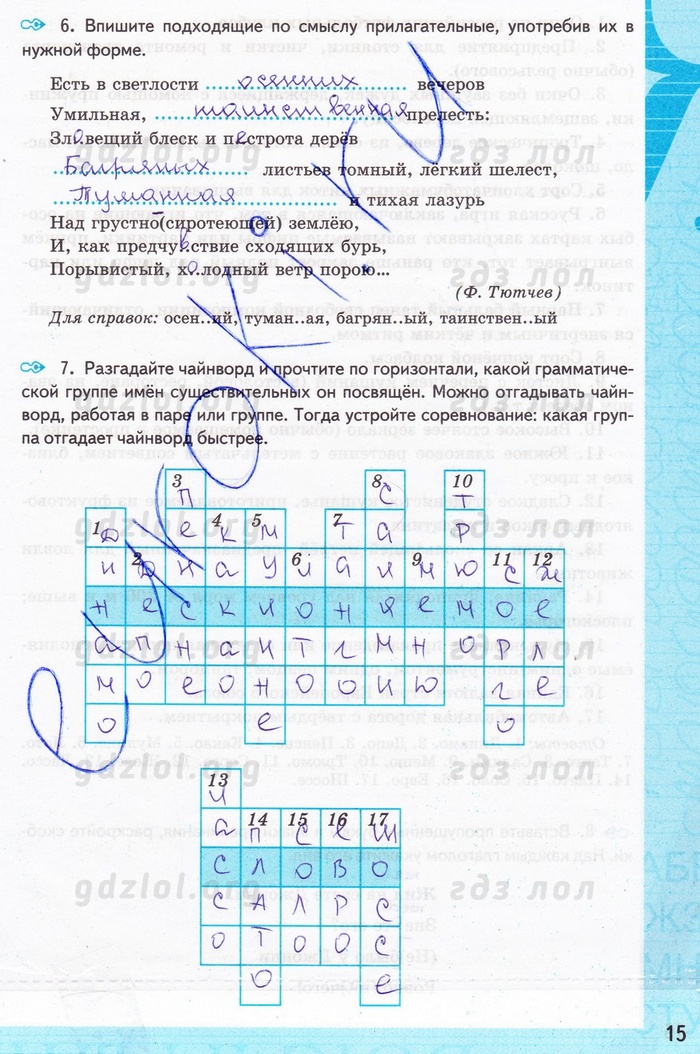 6. Впишите подходящие по смыслу прилагательные, употребив их в
нужной форме.
Есть в светлости осенних вечеров
Умильная, таинственная прелесть:
Зловещий блеск и пестрота дерёв
Багряных листьев томный, лёгкий шелест,
Туманная и тихая лазурь
Над грустно(сиротеющей) землёю,
И, как предчувствие сходящих бурь,
Порывистый, холодный ветр порою...
(Ф. Тютчев)
Для справок: осен..ий, туман..ая, багрян..ый, таинствен..ый
7. Разгадайте чайнворд и прочтите по горизонтали, какой грамматиче-
ской группе имён существительных он посвящён. Можно отгадывать чайн-
ворд, работая в паре или группе. Тогда устройте соревнование: какая груп-
па отгадает чайнворд быстрее.
3 8 10
П С Т
1 4 5 7
Д Е К М Т А Р
2 6 9 11 12
И Д Н А У Л А Л М Ю С Ж
Н Е С К Л О Н Я Е М О Е
А П Н А И Т Г М Н О Р Л
М О Е О Н О О И Ю Г Е
О Е О
13
И
14 15 16 17
А П С Е Ш
С Л О В О
С А Л Р С
О Т О О С
О Е
gdzlol.org гдз лол
gdzlol.org гдз лол
gdzlol.org гдз лол
gdzlol.org гдз лол
gdzlol.org гдз лол
gdzlol.org гдз лол
gdzlol.org гдз лол
15